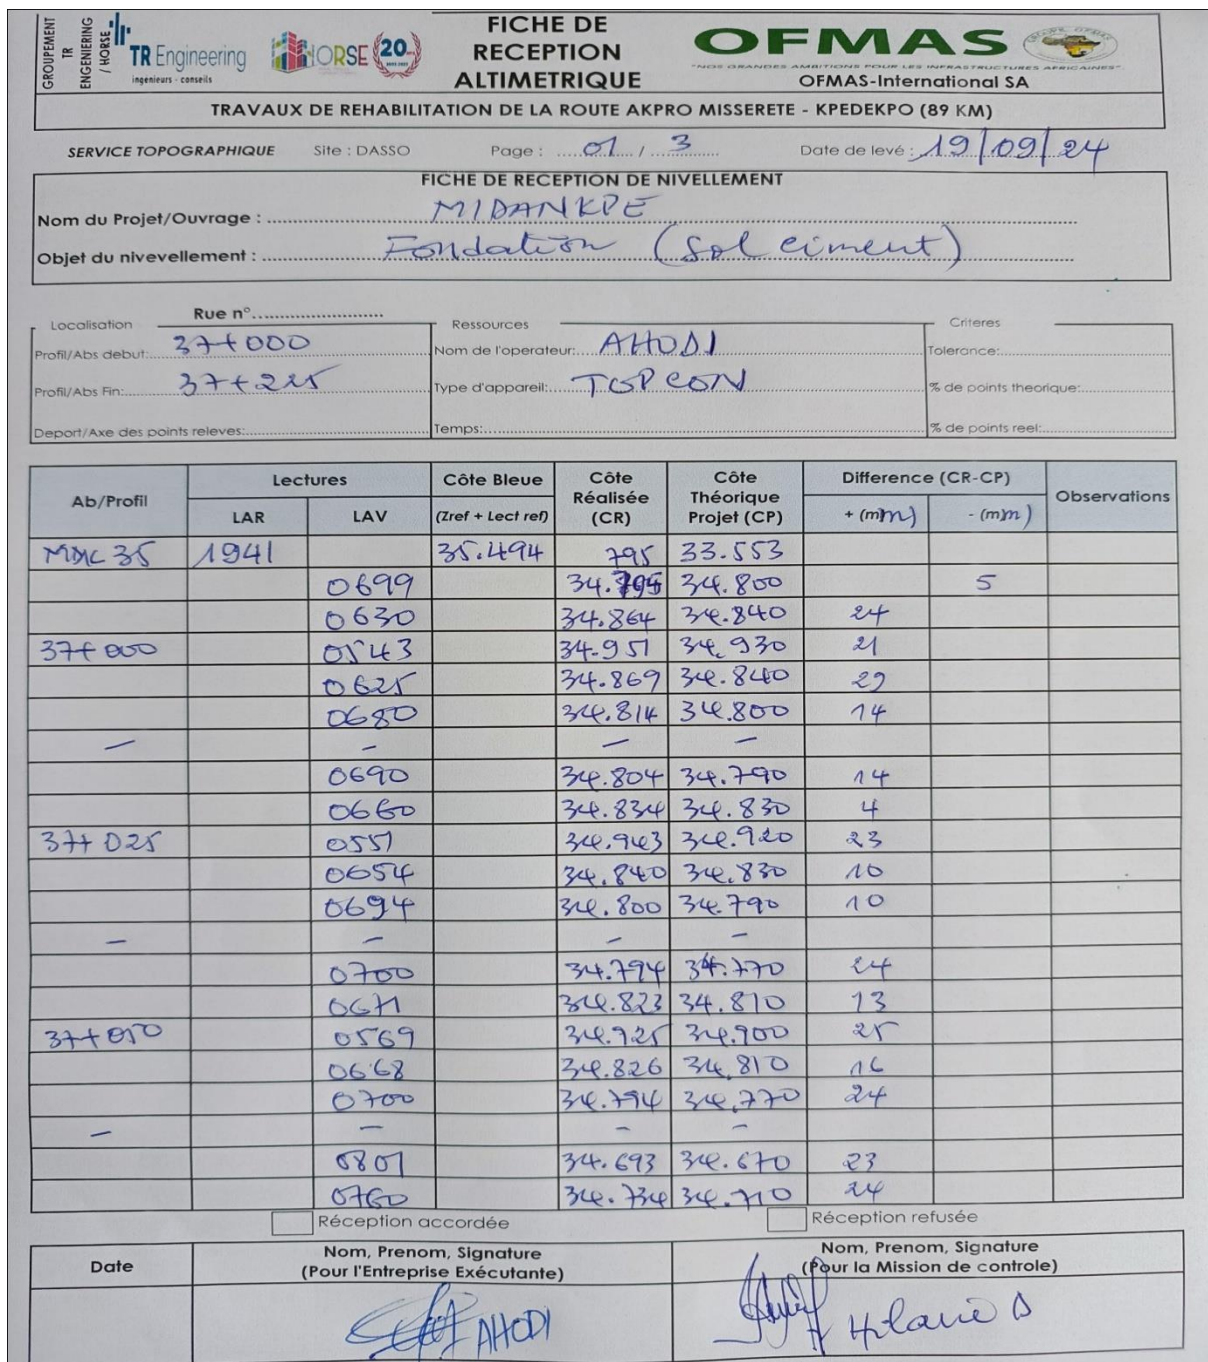 GROUPEMENT TR ENGENIERING / HORSE
TR Engineering
ingenieurs - conseils
HORSE 20
FICHE DE RECEPTION ALTIMETRIQUE
OFMAS
"NOS GRANDES AMBITIONS POUR LES INFRASTRUCTURES AFRICAINES"
OFMAS-International SA
TRAVAUX DE REHABILITATION DE LA ROUTE AKPRO MISSERETE - KPEDEKPO (89 KM)
SERVICE TOPOGRAPHIQUE Site : DASSO Page : 01 / 3 Date de levé : 19/09/24
FICHE DE RECEPTION DE NIVELLEMENT
Nom du Projet/Ouvrage : MIDANKPE
Objet du nivevellement : Fondation (Sol ciment)
Rue n°
Localisation Ressources Criteres
Profil/Abs debut: 37+000 Nom de l'operateur: AHODI Tolerance:
Profil/Abs Fin: 37+225 Type d'appareil: TOPCON % de points theorique:
Deport/Axe des points releves: Temps: % de points reel:
Ab/Profil Lectures Côte Bleue Côte Réalisée (CR) Côte Théorique Projet (CP) Difference (CR-CP) Observations
LAR LAV (Zref + Lect ref) + (mm) - (mm)
35 1941 35.494 795 33.553
0699 34.795 34.800 5
0630 34.864 34.840 24
37+000 0543 34.951 34.930 21
0625 34.869 34.840 29
0680 34.814 34.800 14
— — — —
0690 34.804 34.790 14
0660 34.834 34.830 4
37+025 0551 34.943 34.920 23
0654 34.840 34.830 10
0694 34.800 34.790 10
— — — —
0700 34.794 34.770 24
0671 34.823 34.810 13
37+050 0569 34.925 34.900 25
0668 34.826 34.810 16
0700 34.794 34.770 24
— — — —
0801 34.693 34.670 23
0760 34.734 34.710 24
Réception accordée Réception refusée
Date Nom, Prenom, Signature (Pour l'Entreprise Exécutante) Nom, Prenom, Signature (Pour la Mission de controle)
AHODI